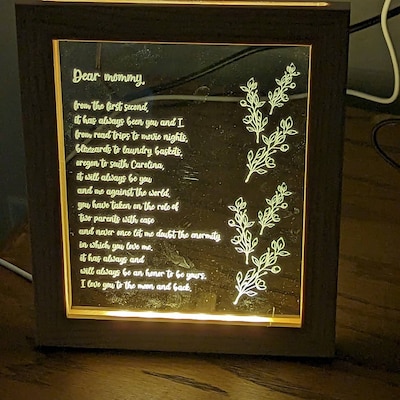 Dear mommy,
from the first second,
it has always been you and I.
from road trips to movie nights,
blizzards to laundry baskets,
oregon to south Carolina,
it will always be you
and me against the world.
you have taken on the role of
two parents with ease
and never once let me doubt the enormity
in which you love me.
it has always and
will always be an honor to be yours.
I love you to the moon and back,